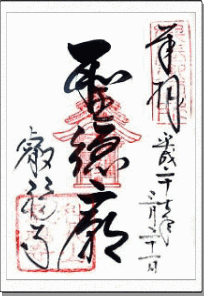 奉拝
平成二十七年
三月二十一日
聖徳廟
叡福寺